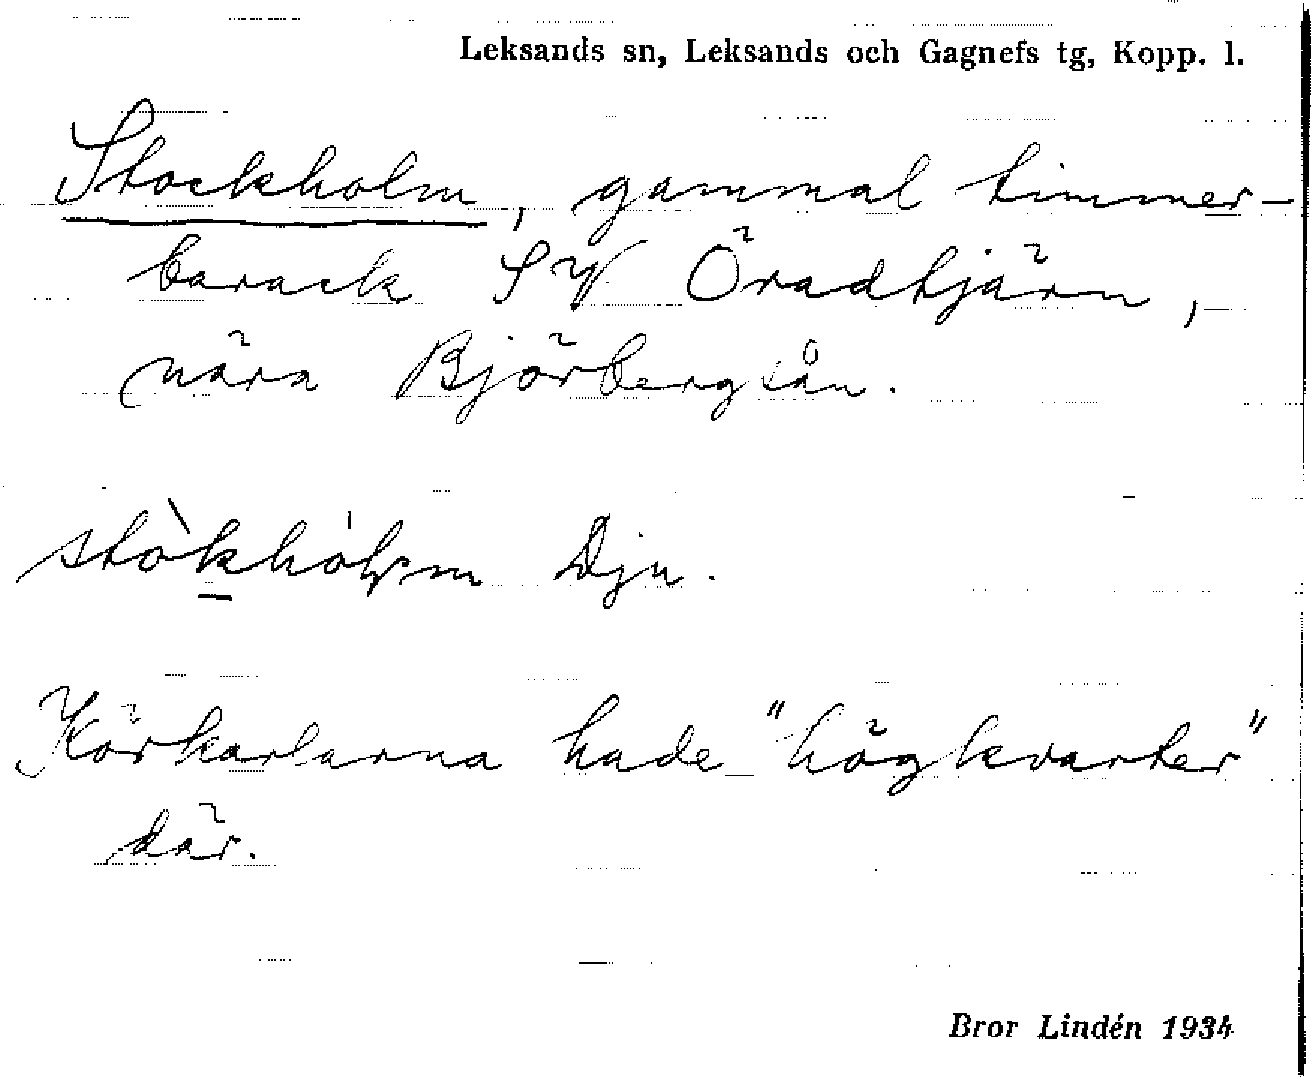 Leksands sn, Leksands och Gagnefs tg, Kopp. l.
Stockholm, gammal timmer-
barack SV Öradtjärn,
nära Björbergsån.
stòkhólm Dju.
Körkarlarna hade "högkvarter"
där.
Bror Lindén 1934